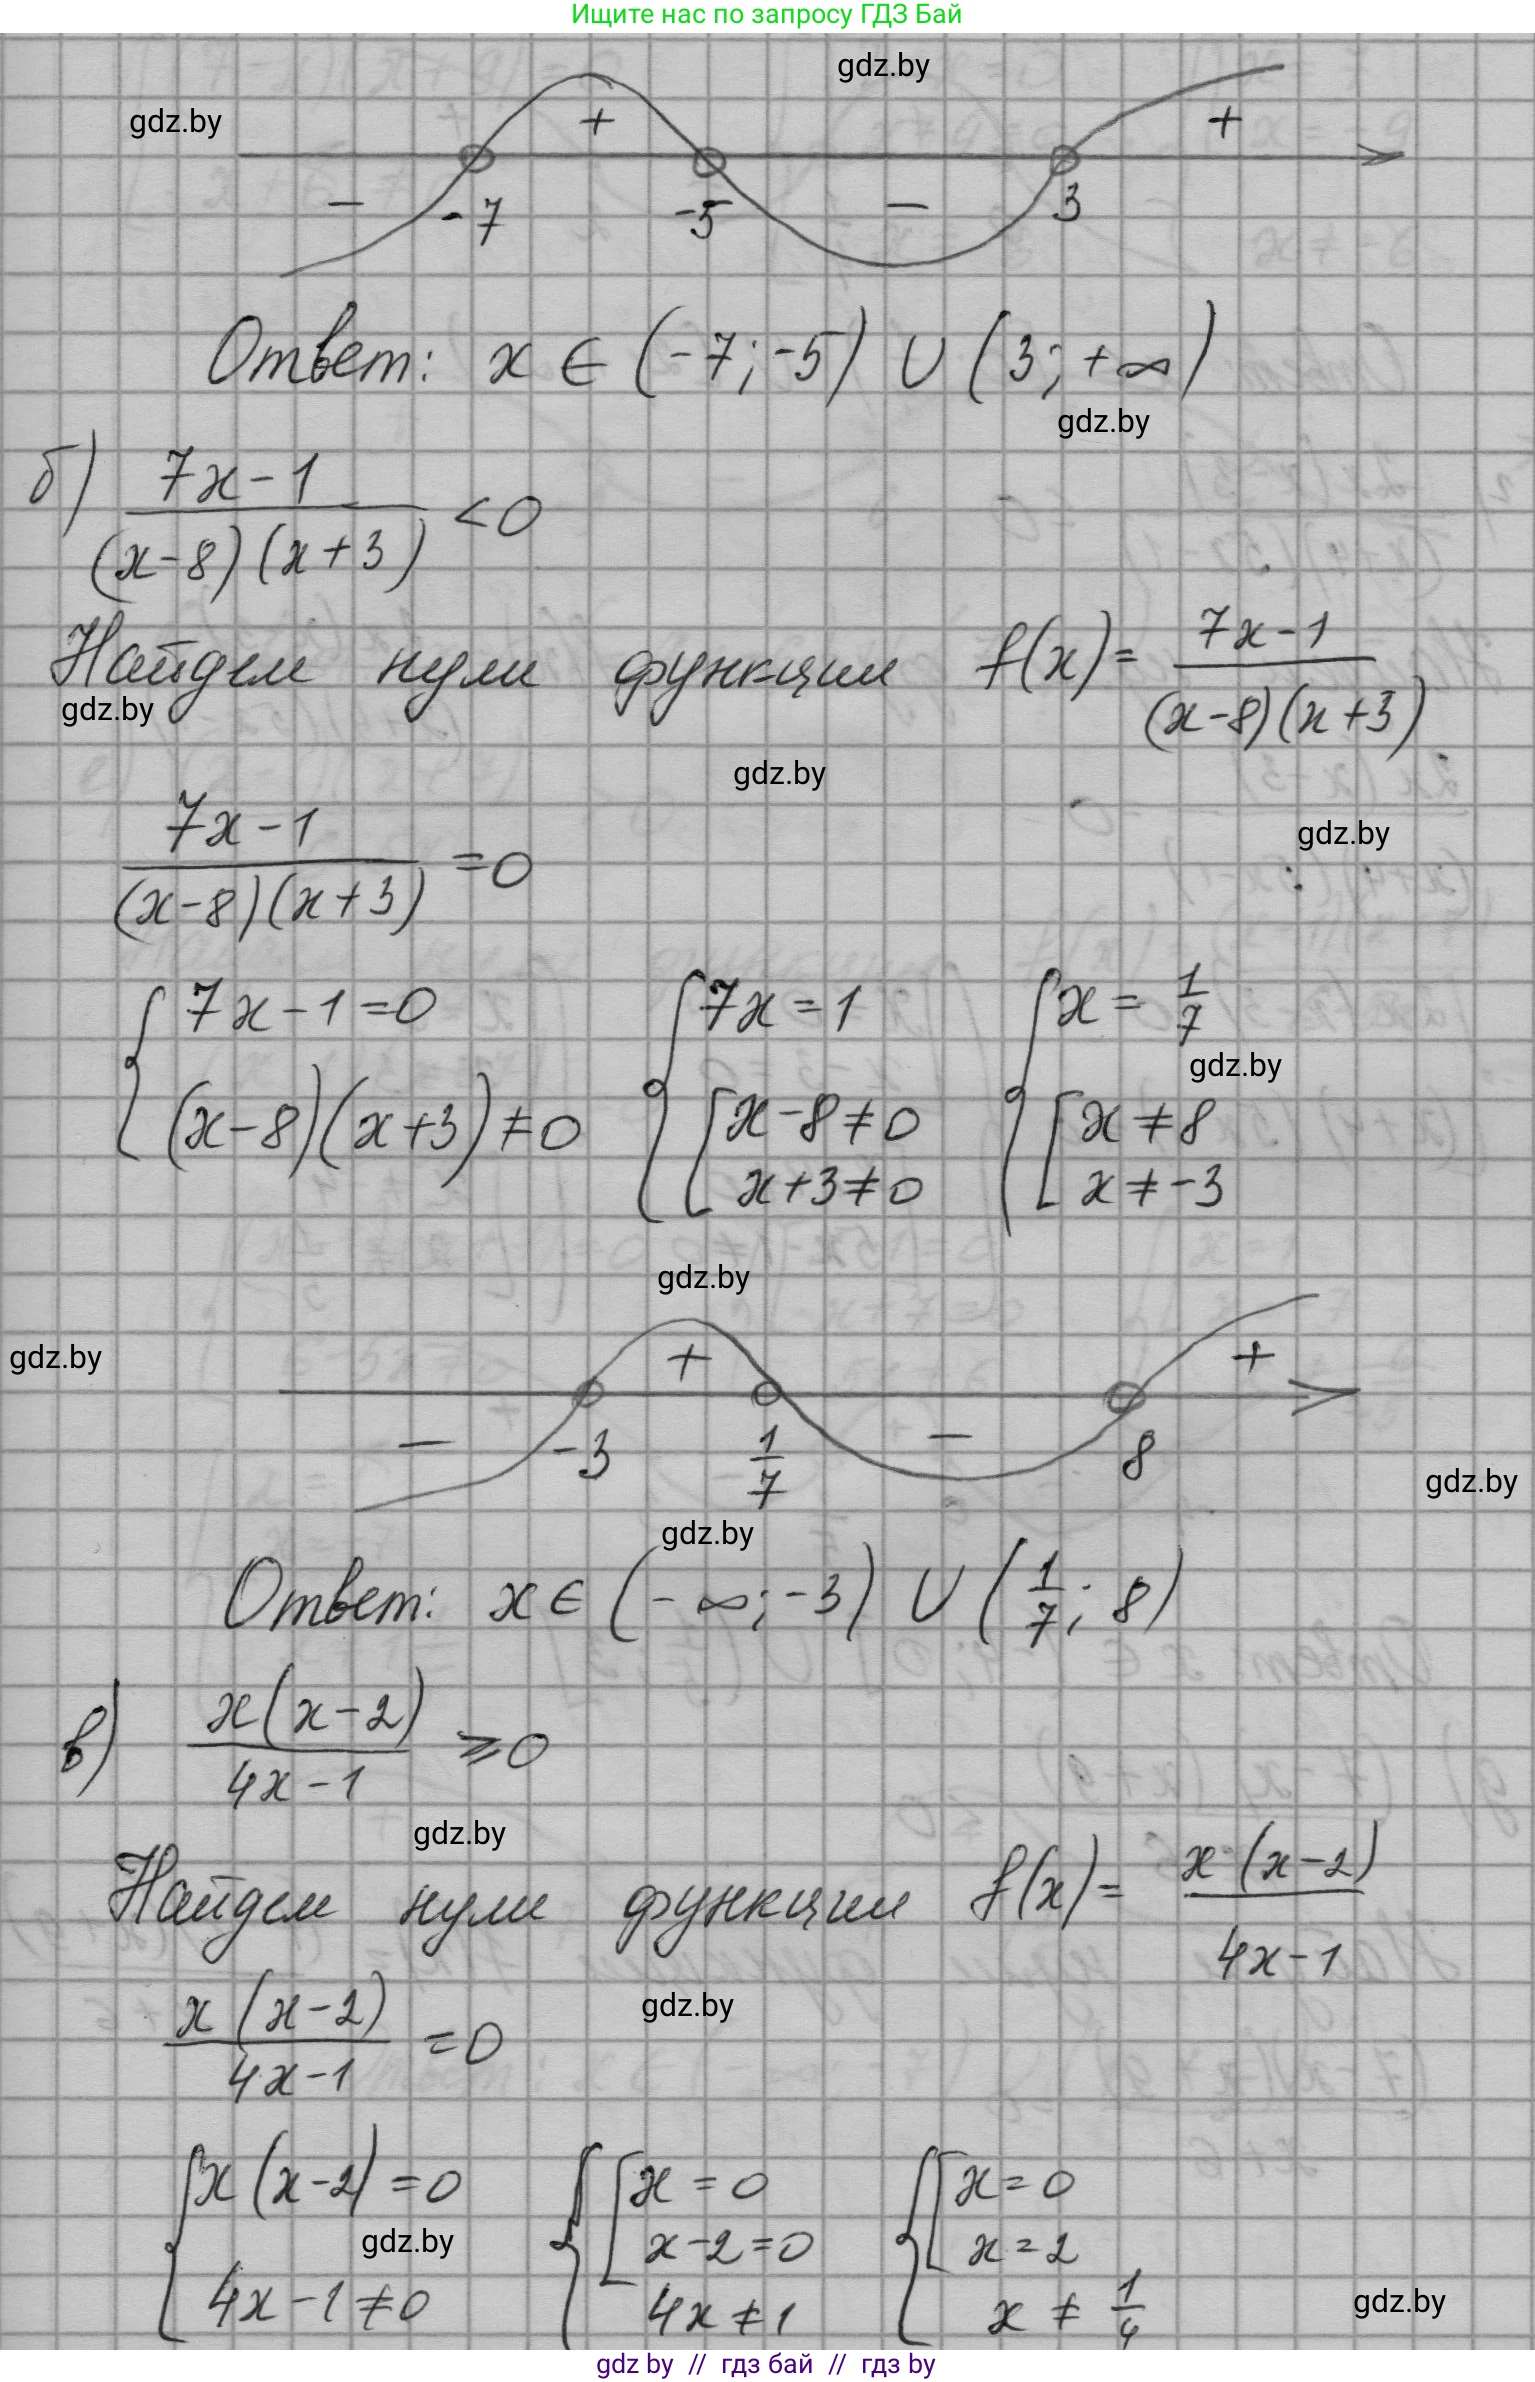 Ищите нас по запросу ГДЗ Бай
gdz.by
gdz.by
+ +
− -7 -5 − 3
Ответ: x ∈ (-7; -5) ∪ (3; +∞)
gdz.by
б) (7x-1)/((x-8)(x+3)) < 0
Найдем нули функции f(x) = (7x-1)/((x-8)(x+3))
gdz.by
gdz.by
gdz.by
(7x-1)/((x-8)(x+3)) = 0
{ 7x-1=0 { 7x=1 { x = 1/7
gdz.by
(x-8)(x+3)≠0 [ x-8≠0 [ x≠8
x+3≠0 x≠-3
gdz.by
gdz.by
+ +
− -3 1/7 − 8
gdz.by
gdz.by
Ответ: x ∈ (-∞; -3) ∪ (1/7; 8)
в) x(x-2)/(4x-1) ⩾ 0
gdz.by
Найдем нули функции f(x) = x(x-2)/(4x-1)
gdz.by
x(x-2)/(4x-1) = 0
{ x(x-2)=0 { [ x=0 { [ x=0
gdz.by
x-2=0 x=2
4x-1≠0 4x≠1 x ≠ 1/4
gdz.by
gdz by // гдз бай // гдз by